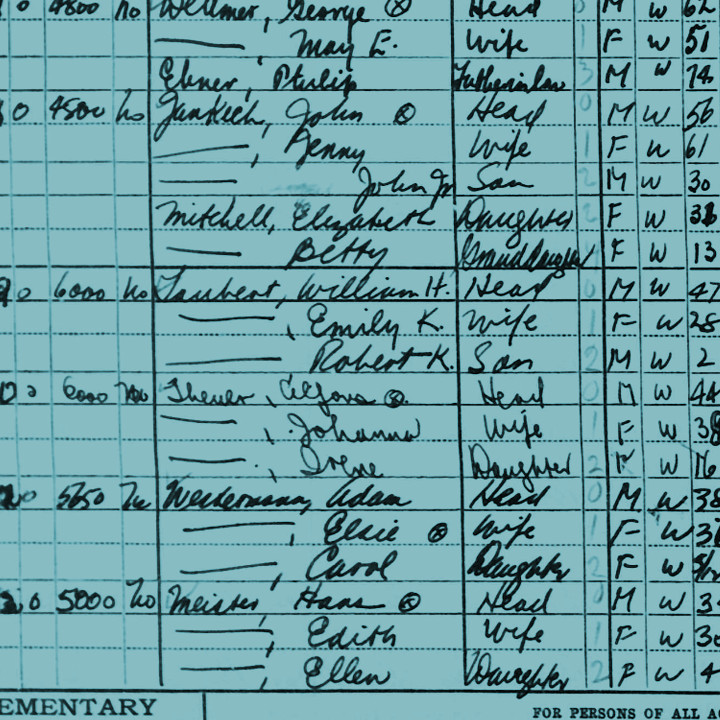 0 4800 No George ⓧ Head 0 M W 62
—, May E. Wife 1 F W 51
Ebner, Philip Fatherinlaw 3 M W 74
0 4500 No John ⓧ Head 0 M W 56
—, Jenny Wife 1 F W 61
— John Jr Son 2 M W 30
Mitchell, Elizabeth Daughter 2 F W
— Betty GrandDaughter F W 13
0 6000 No Taubert, William H. Head 0 M W 47
—, Emily K. Wife 1 F W 28
— Robert K. Son 2 M W 2
6000 No Theuer, ⓧ Head 0 M W 44
—, Johanna Wife 1 F W
—, Irene Daughter 2 F W 16
0 5650 No Westermann, Adam Head 0 M W 38
—, Elsie ⓧ Wife 1 F W
—, Carol Daughter 2 F W
0 5000 No Meister, Hans ⓧ Head 0 M W
— Edith Wife 1 F W
— Ellen Daughter 2 F W 4
EMENTARY FOR PERSONS OF ALL AG